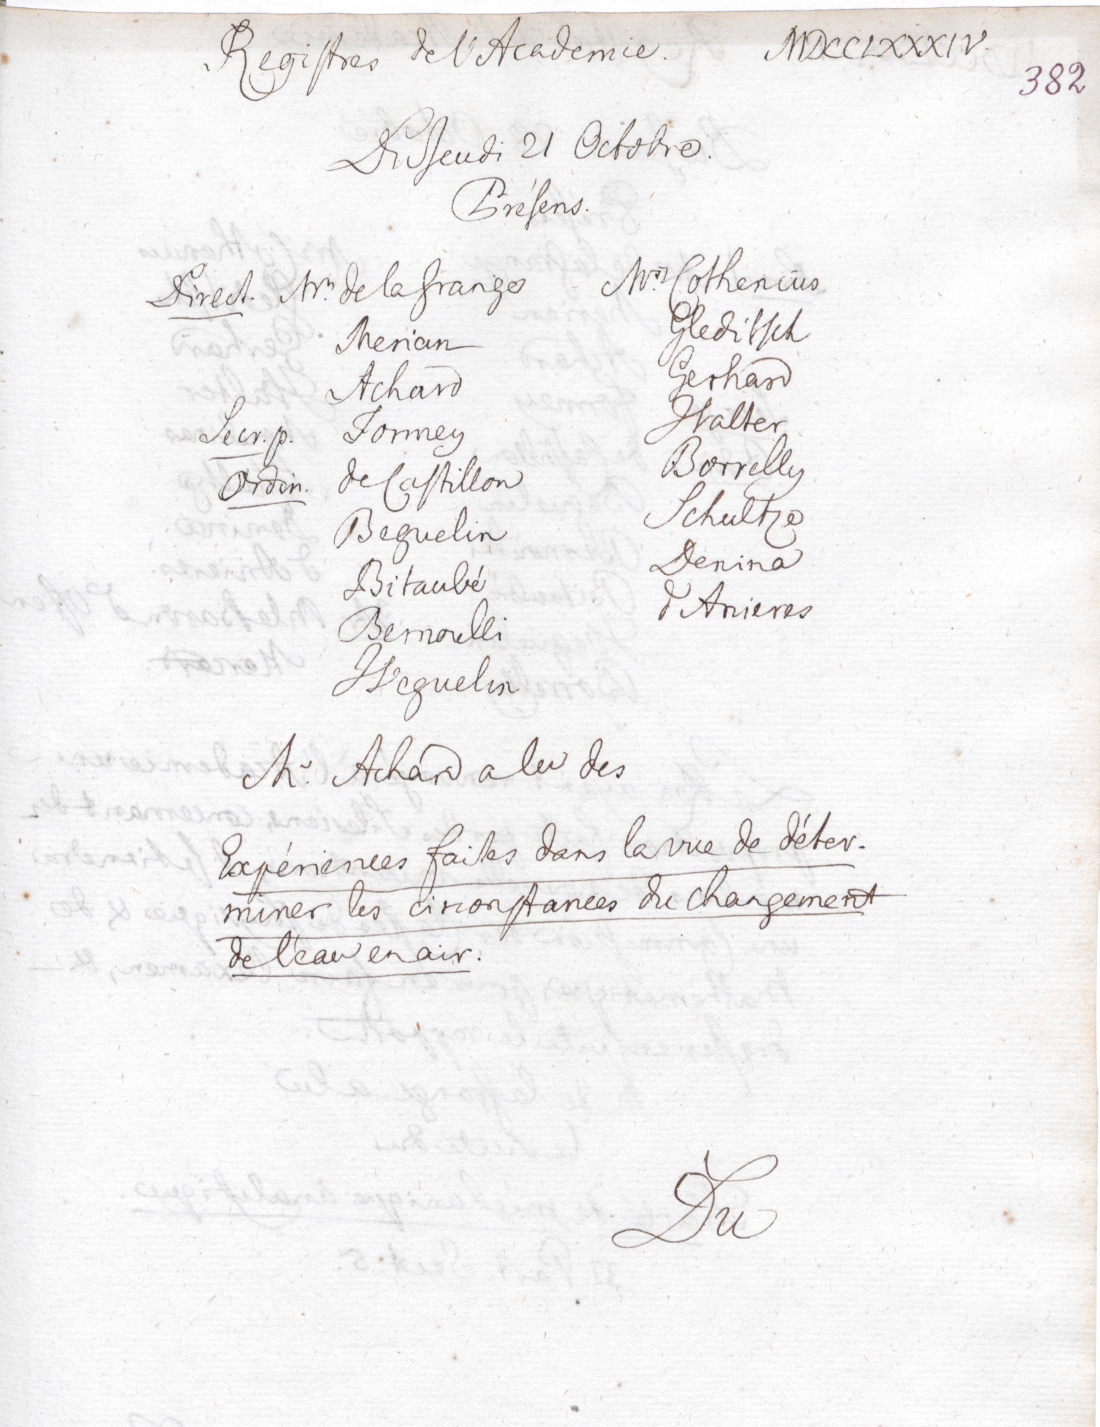 Registres de l'Academie. MDCCLXXXIV.
382
Du Jeudi 21 Octobre.
Présens.
Direct. Mrs. de la Grange
Merian
Achard
Secr. p. Formey
Ordin. de Castillon
Beguelin
Bitaubé
Bernoulli
Weguelin
Mrs. Cothenius
Gleditsch
Gerhard
Walter
Borrelly
Schultze
Denina
d'Anieres
Mr. Achard a lu des
Expériences faites dans la vue de déter-
miner les circonstances du changement
de l'eau en air.
Du